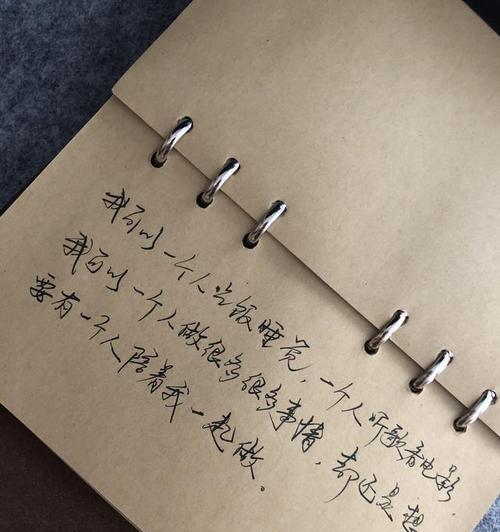 我可以一个人吃饭睡觉，一个人听歌看电影
我可以一个人做很多很多事情，却还是想
要有一个人陪着我一起做。